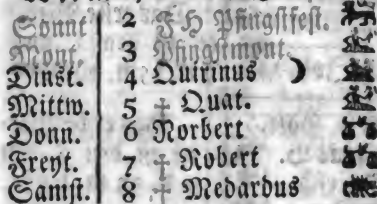 Sonnt 2 F H Pfingstfest.
Mont. 3 Pfingstmont.
Dinst. 4 Quirinus
Mittw. 5 † Quat.
Donn. 6 Norbert
Freyt. 7 † Robert
Samst. 8 † Medardus